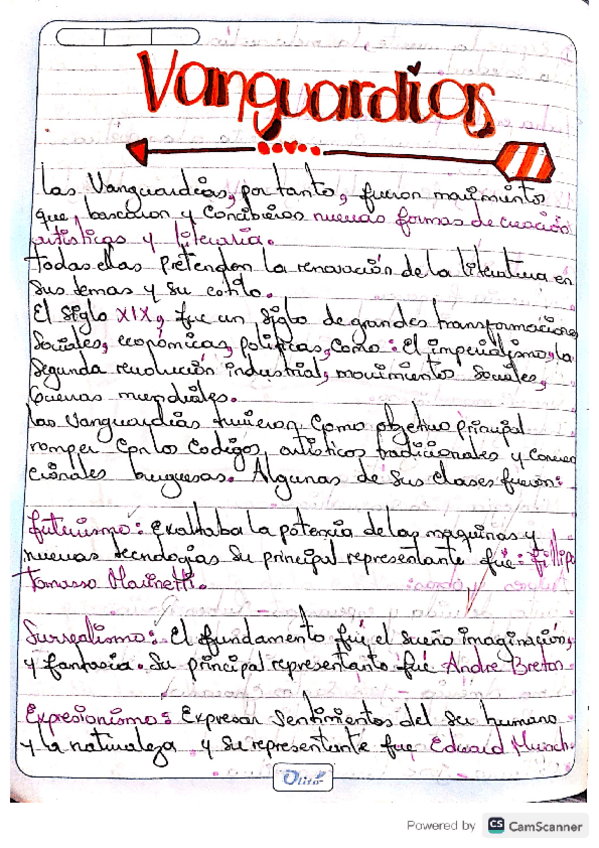 Vanguardias
Las Vanguardias, por tanto, fueron movimientos
que, buscaron y concibieron nuevas formas de creación
artísticas y literaria.
todas ellas pretenden la renovación de la literatura en
sus temas y su estilo.
El siglo XIX, fue un siglo de grandes transformaciones
sociales, económicas, políticas, como: el imperialismo, la
segunda revolución industrial, movimientos sociales,
Guerras mundiales.
las vanguardias tuvieron como objetivo principal
romper con los codigos, artísticos tradicionales y conven
cionales burguesas. Algunas de sus clases fueron:
futurismo: Exaltaba la potencia de las maquinas y
nuevas tecnologías su principal representante fue: fillipo
Tomasso Marinetti.
Surrealismo: El fundamento fué el sueño imaginación,
y fantasia. Su principal representante fué Andre Breton
Expresionismo: Expresar sentimientos del ser humano
y la naturaleza y su representante fue Edward Munch
Powered by CS CamScanner